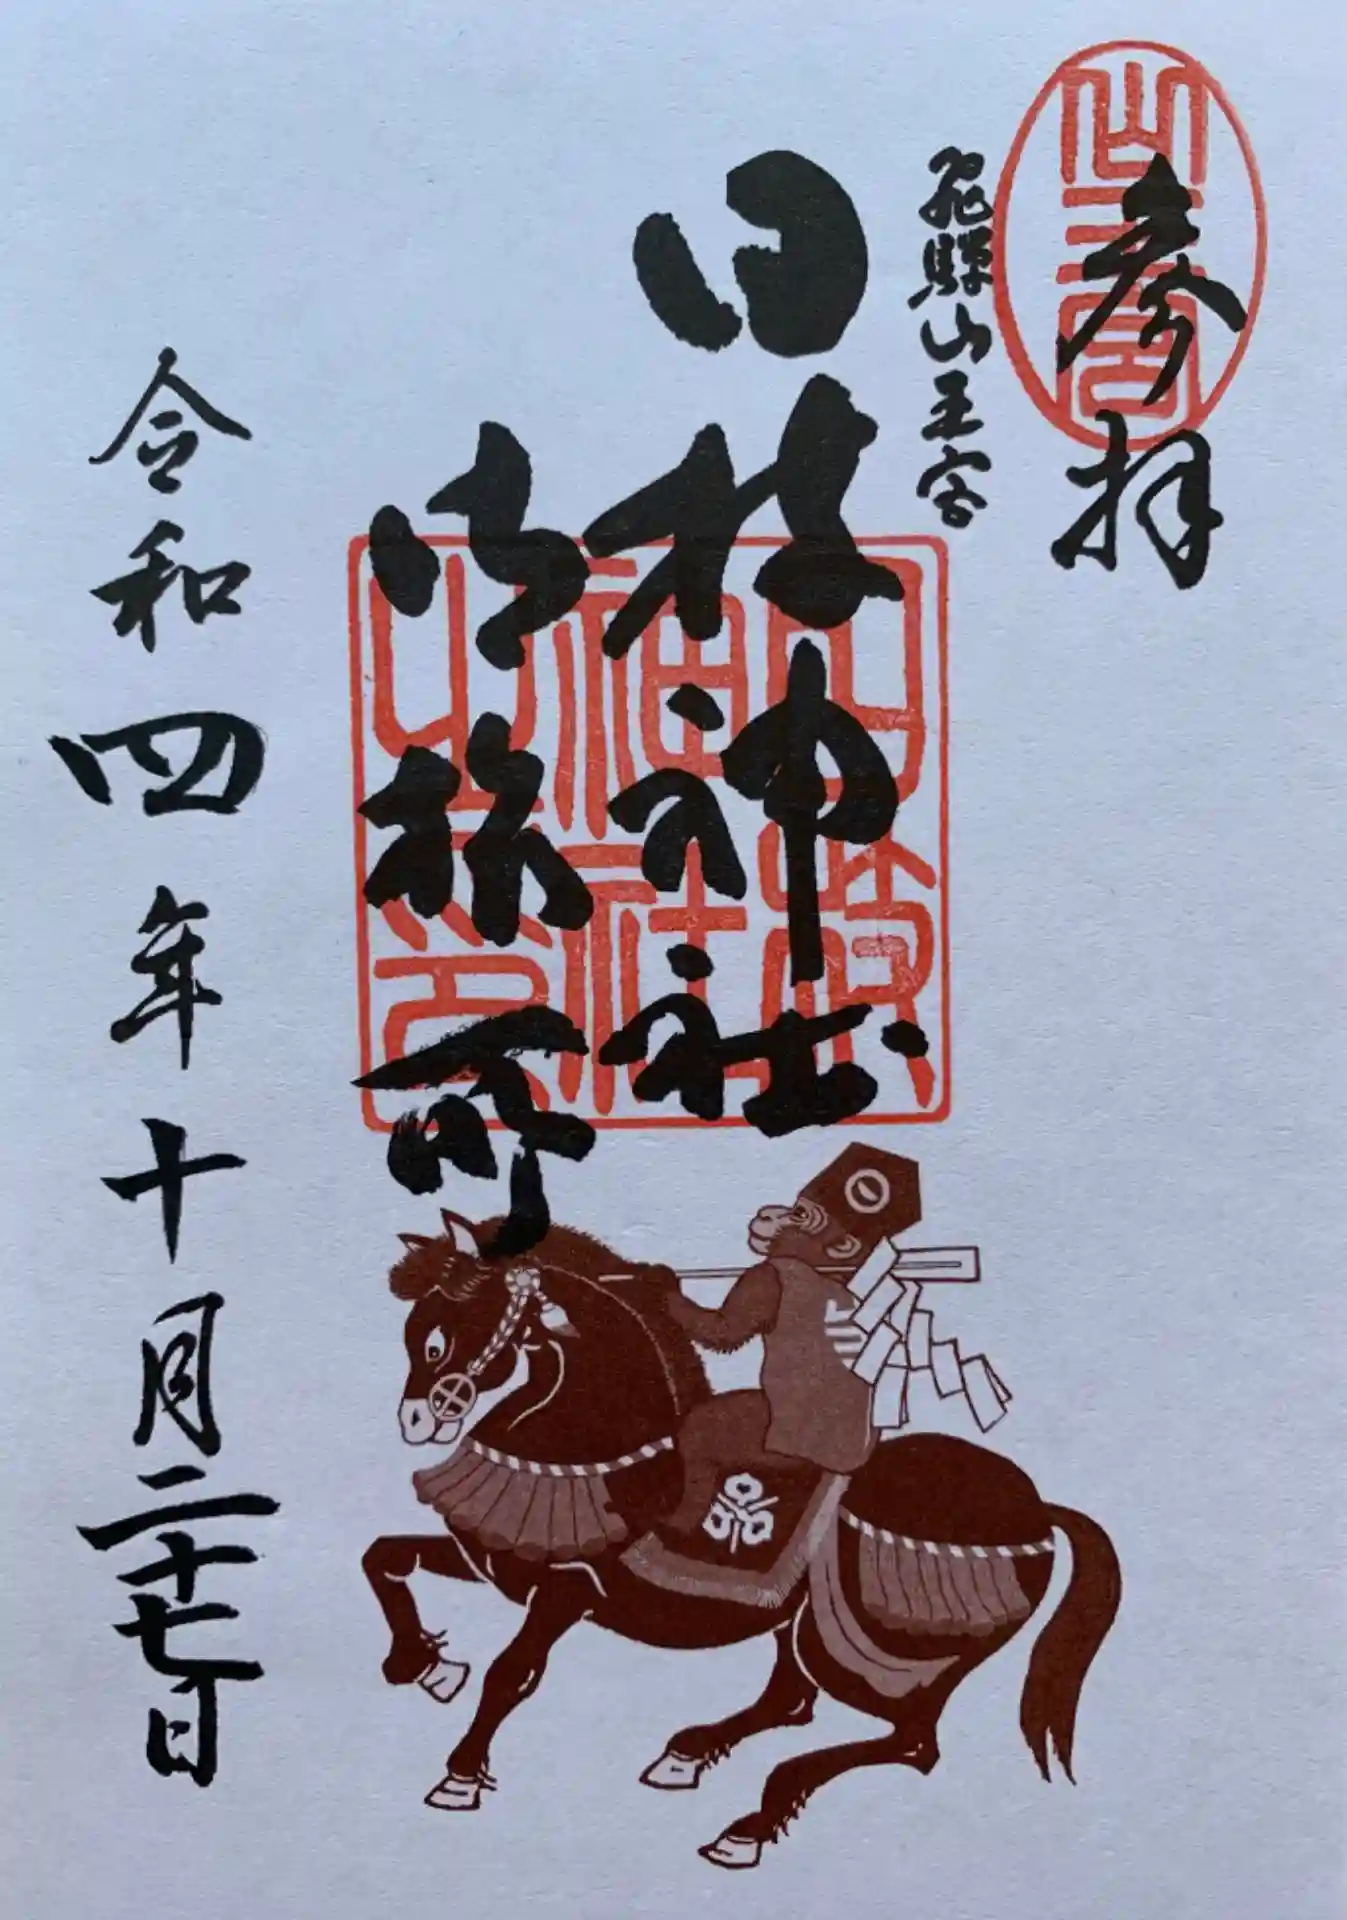 参拝
山王宮
飛騨山王宮
日枝神社
御旅所
日枝神社之印
令和四年十月二十七日